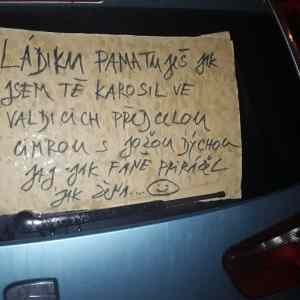 LÁDIKU PAMATUJEŠ JAK
JSEM TĚ KAROSIL VE
VALDICÍCH PŘED CELOU
CIMROU S JOŽOU DÝCHOU
JEJ JAK FAŇE PAPÁČEL
JAK ŽENA...